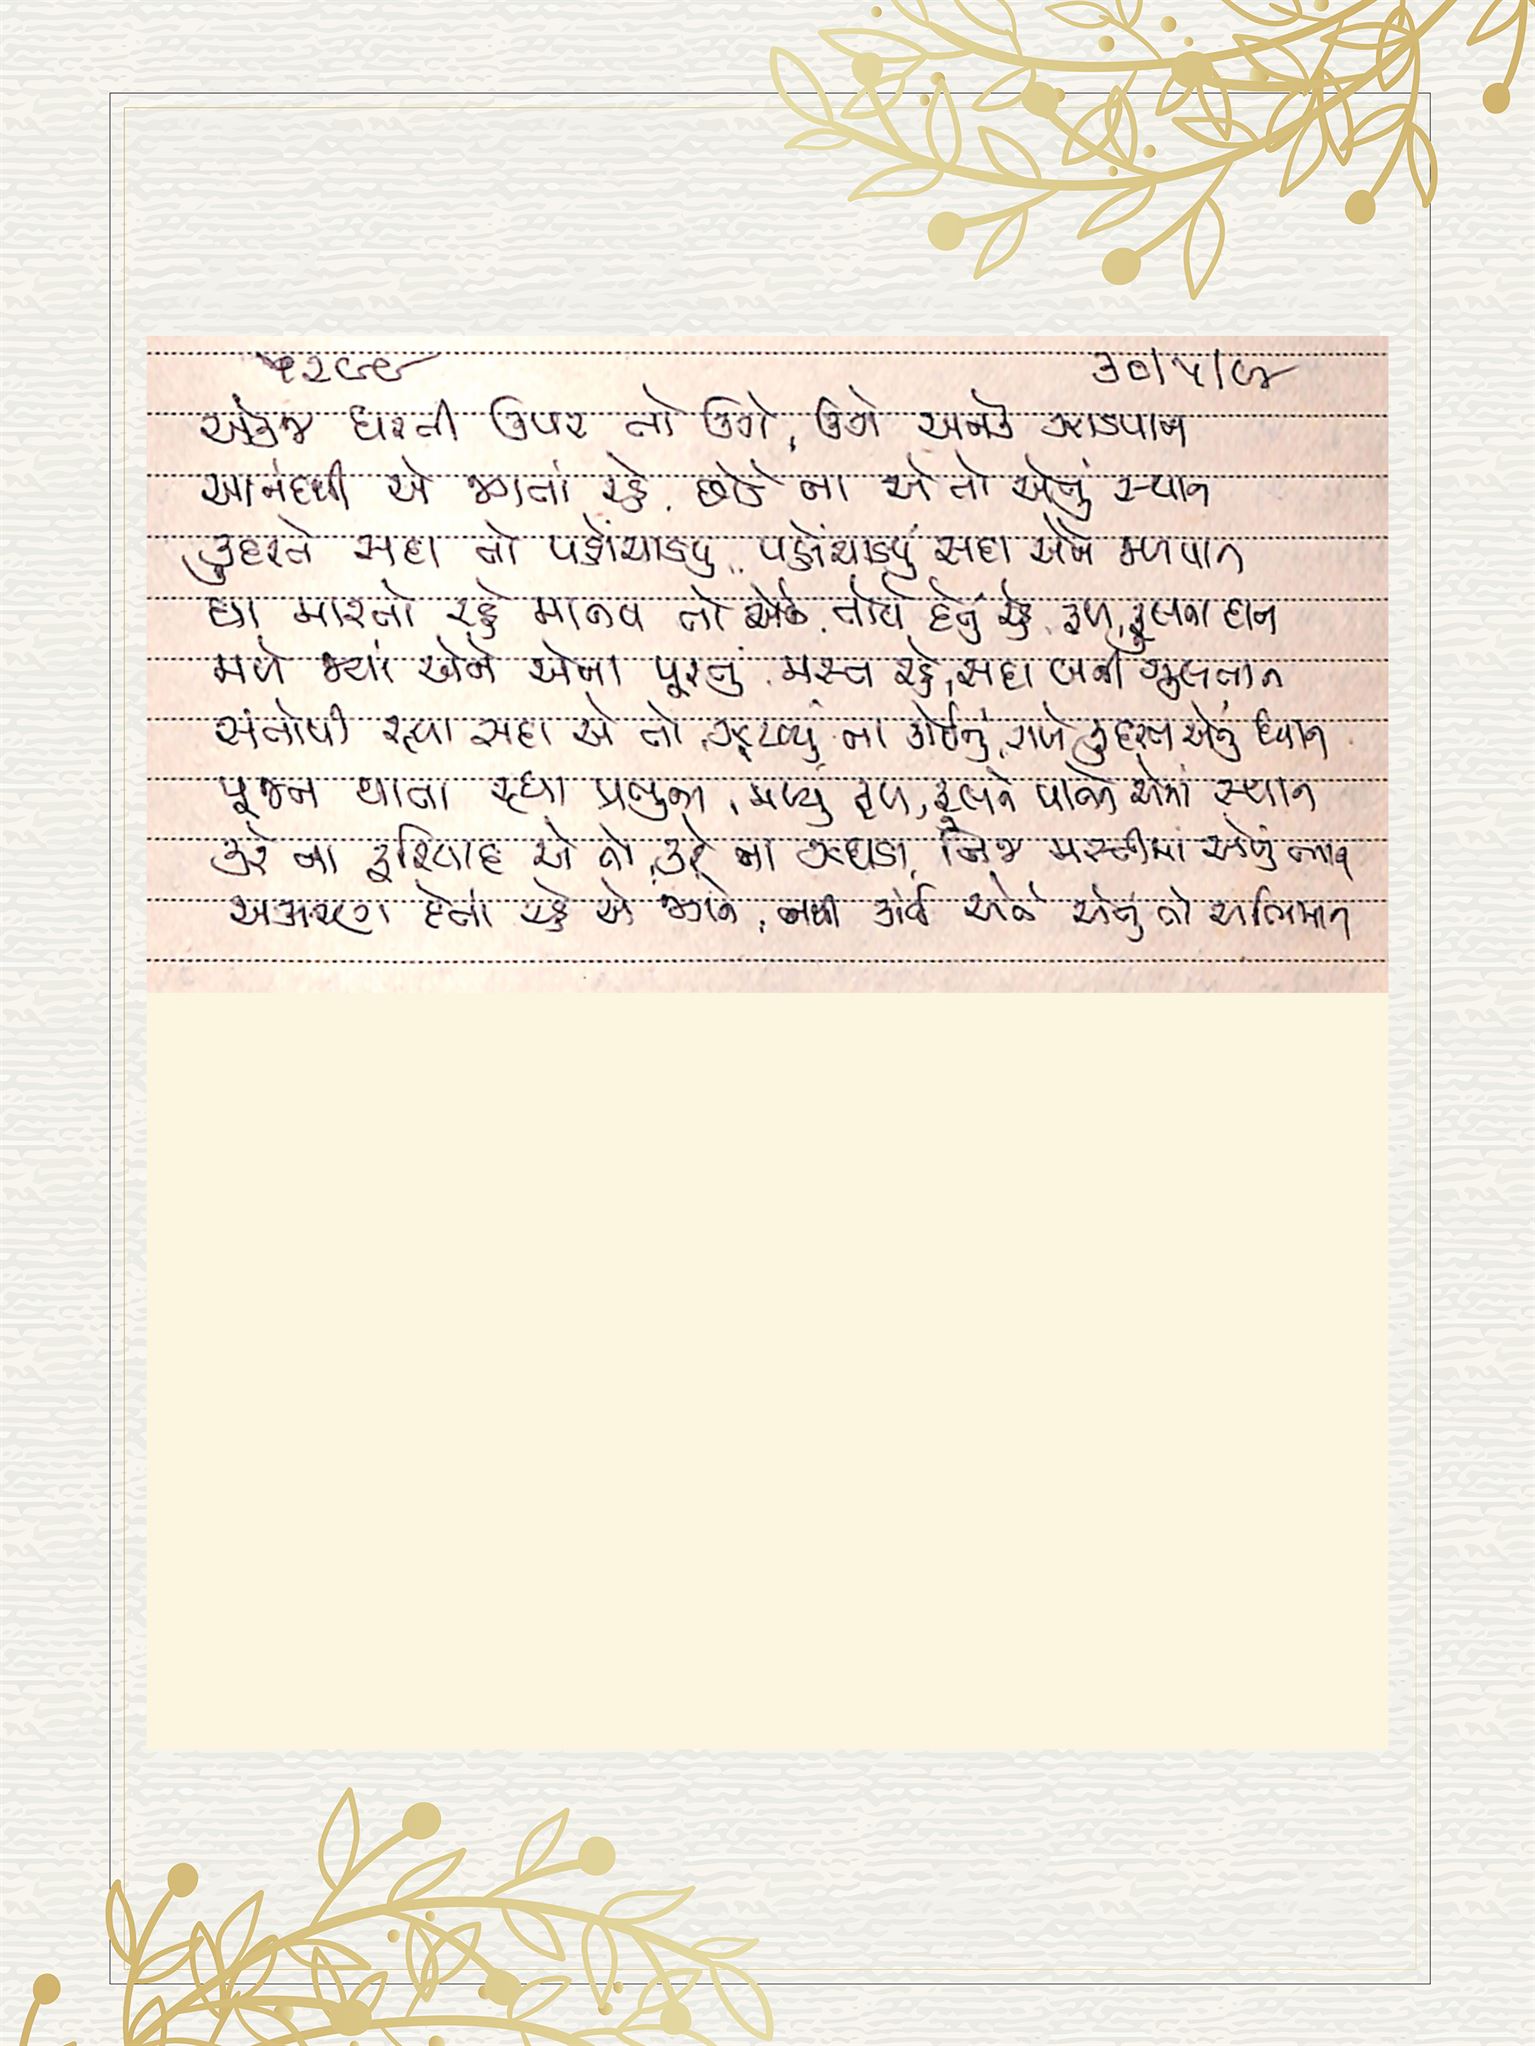 ૫૨૯૯ ૩૦/૫/૯૪
એકજ ધરતી ઉપર તો ઉગે, ઉગે અનેક ઝાડપાન
આનંદથી એ ઝૂમતાં રહે, છોડે ના એ તો એનું સ્થાન
કુદરતે સદા તો પહોંચાડયું, પહોંચાડયું સદા એને જળપાન
ઘા મારતો રહે માનવ તો એને, તોયે દેતું રહે ફળ, ફૂલના દાન
મળે જ્યાં એને એના પૂરતું, મસ્ત રહે, સદા બની ગુલતાન
સંતોષી રહ્યા સદા એ તો, ઝૂંટવ્યું ના કોઈનું, રાખે કુદરત એનું ધ્યાન
પૂજન થાતા રહ્યા પ્રભુના, મળ્યું ફળ, ફૂલને પાનને એમાં સ્થાન
કરે ના ફરિયાદ એ તો, કરે ના ઝઘડા, નિજ મસ્તીમાં એનું
દેતાં રહે એ જગને, નથી કાંઈ એને એનું તો અભિમાન